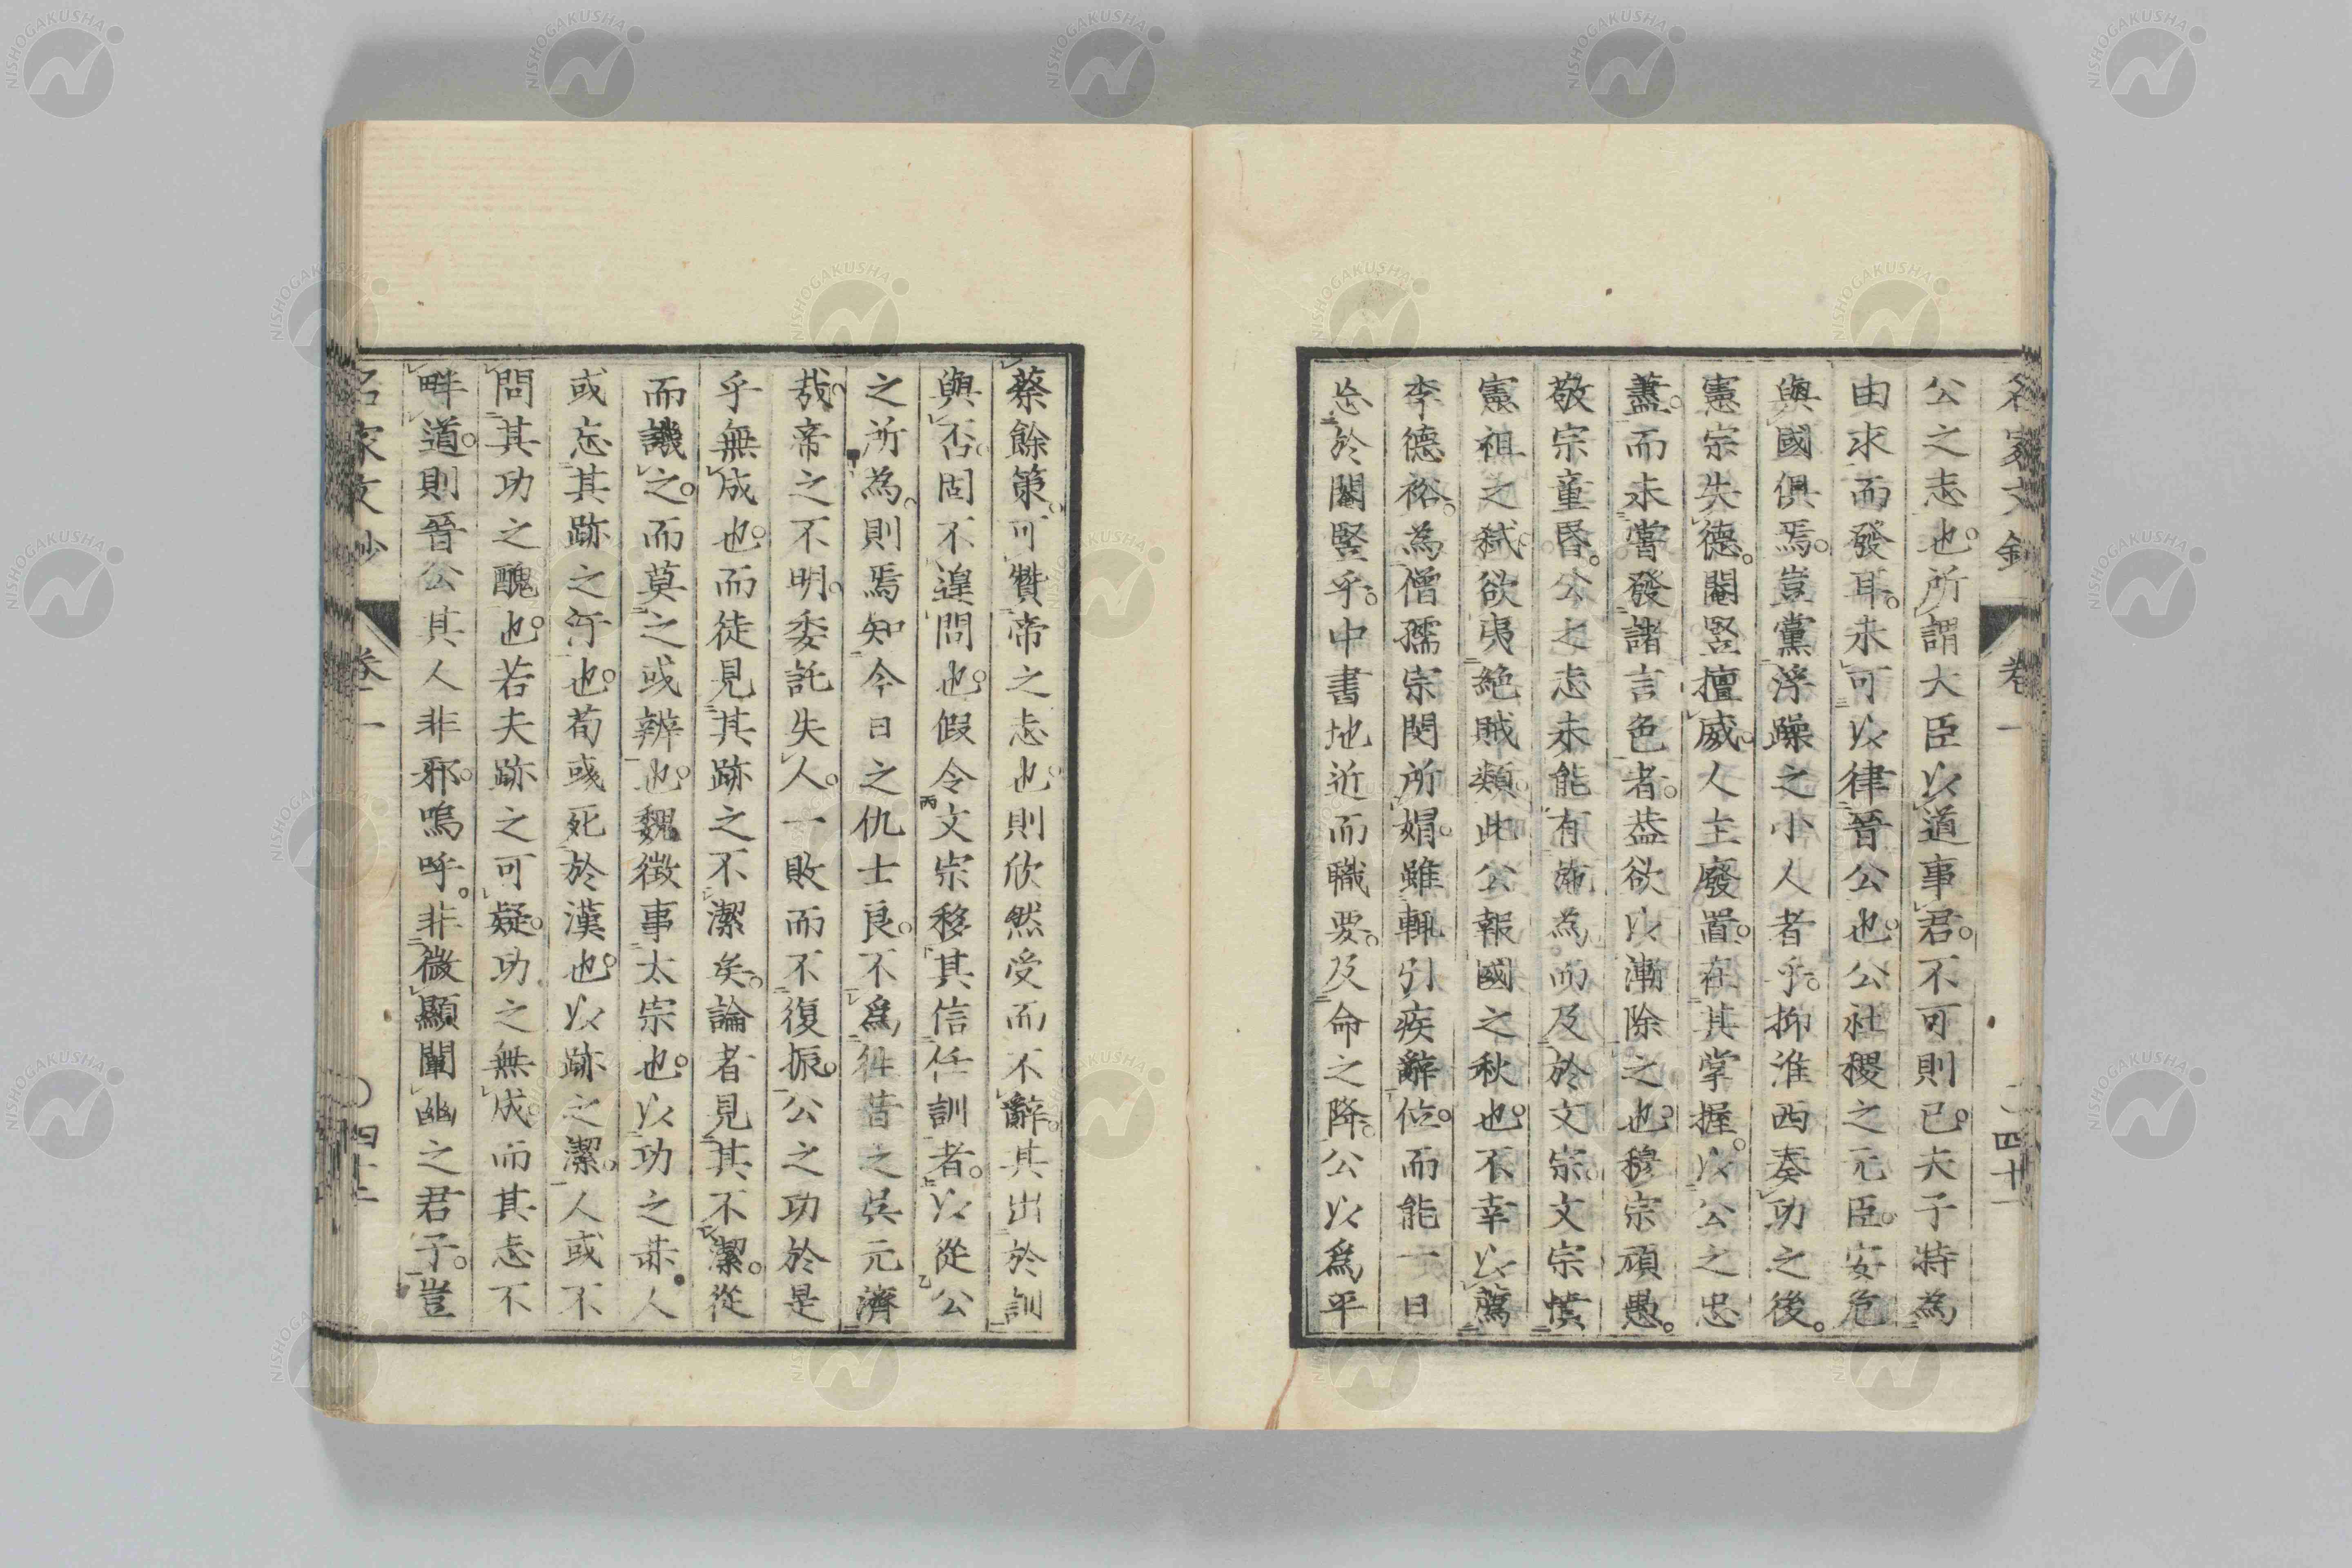 名家文鈔 卷一 四十一
公之志也。所謂大臣以道事君。不可則已。夫子特為
由求而發耳。未可以律晉公也。公社稷之元臣。安危
與國俱焉。豈黨浮躁之小人者乎。抑淮西奏功之後。
憲宗失德。閹竪擅威。人主廢置。在其掌握。以公之忠
藎。而未嘗發諸言色者。葢欲以漸除之也。穆宗頑愚。
敬宗童昏。公之志未能有所為而及於文宗。文宗憤
憲祖之弒。欲夷絕賊類。此公報國之秋也。不幸以薦
李德裕。為僧孺宗閔所媢。雖輒引疾辭位。而能一日
忘於閹竪乎。中書地近而職要。及命之降。公以爲平
蔡餘策。可贊帝之志也。則欣然受而不辭。其出於訓
與否。固不遑問也。假令文宗移其信任訓者。以從公
之所為。則焉知今日之仇士良。不爲徃昔之吳元濟
哉。帝之不明。委託失人。一敗而不復振。公之功於是
乎無成也。而徒見其跡之不潔矣。論者見其不潔。從
而譏之。而莫之或辨也。魏徵事太宗也。以功之赫人
或忘其跡之汚也。荀彧死於漢也。以跡之潔。人或不
問其功之醜也。若夫跡之可疑。功之無成。而其志不
畔道。則晉公其人非邪。嗚呼。非微顯闡幽之君子。豈
名家文鈔 卷一 四十一